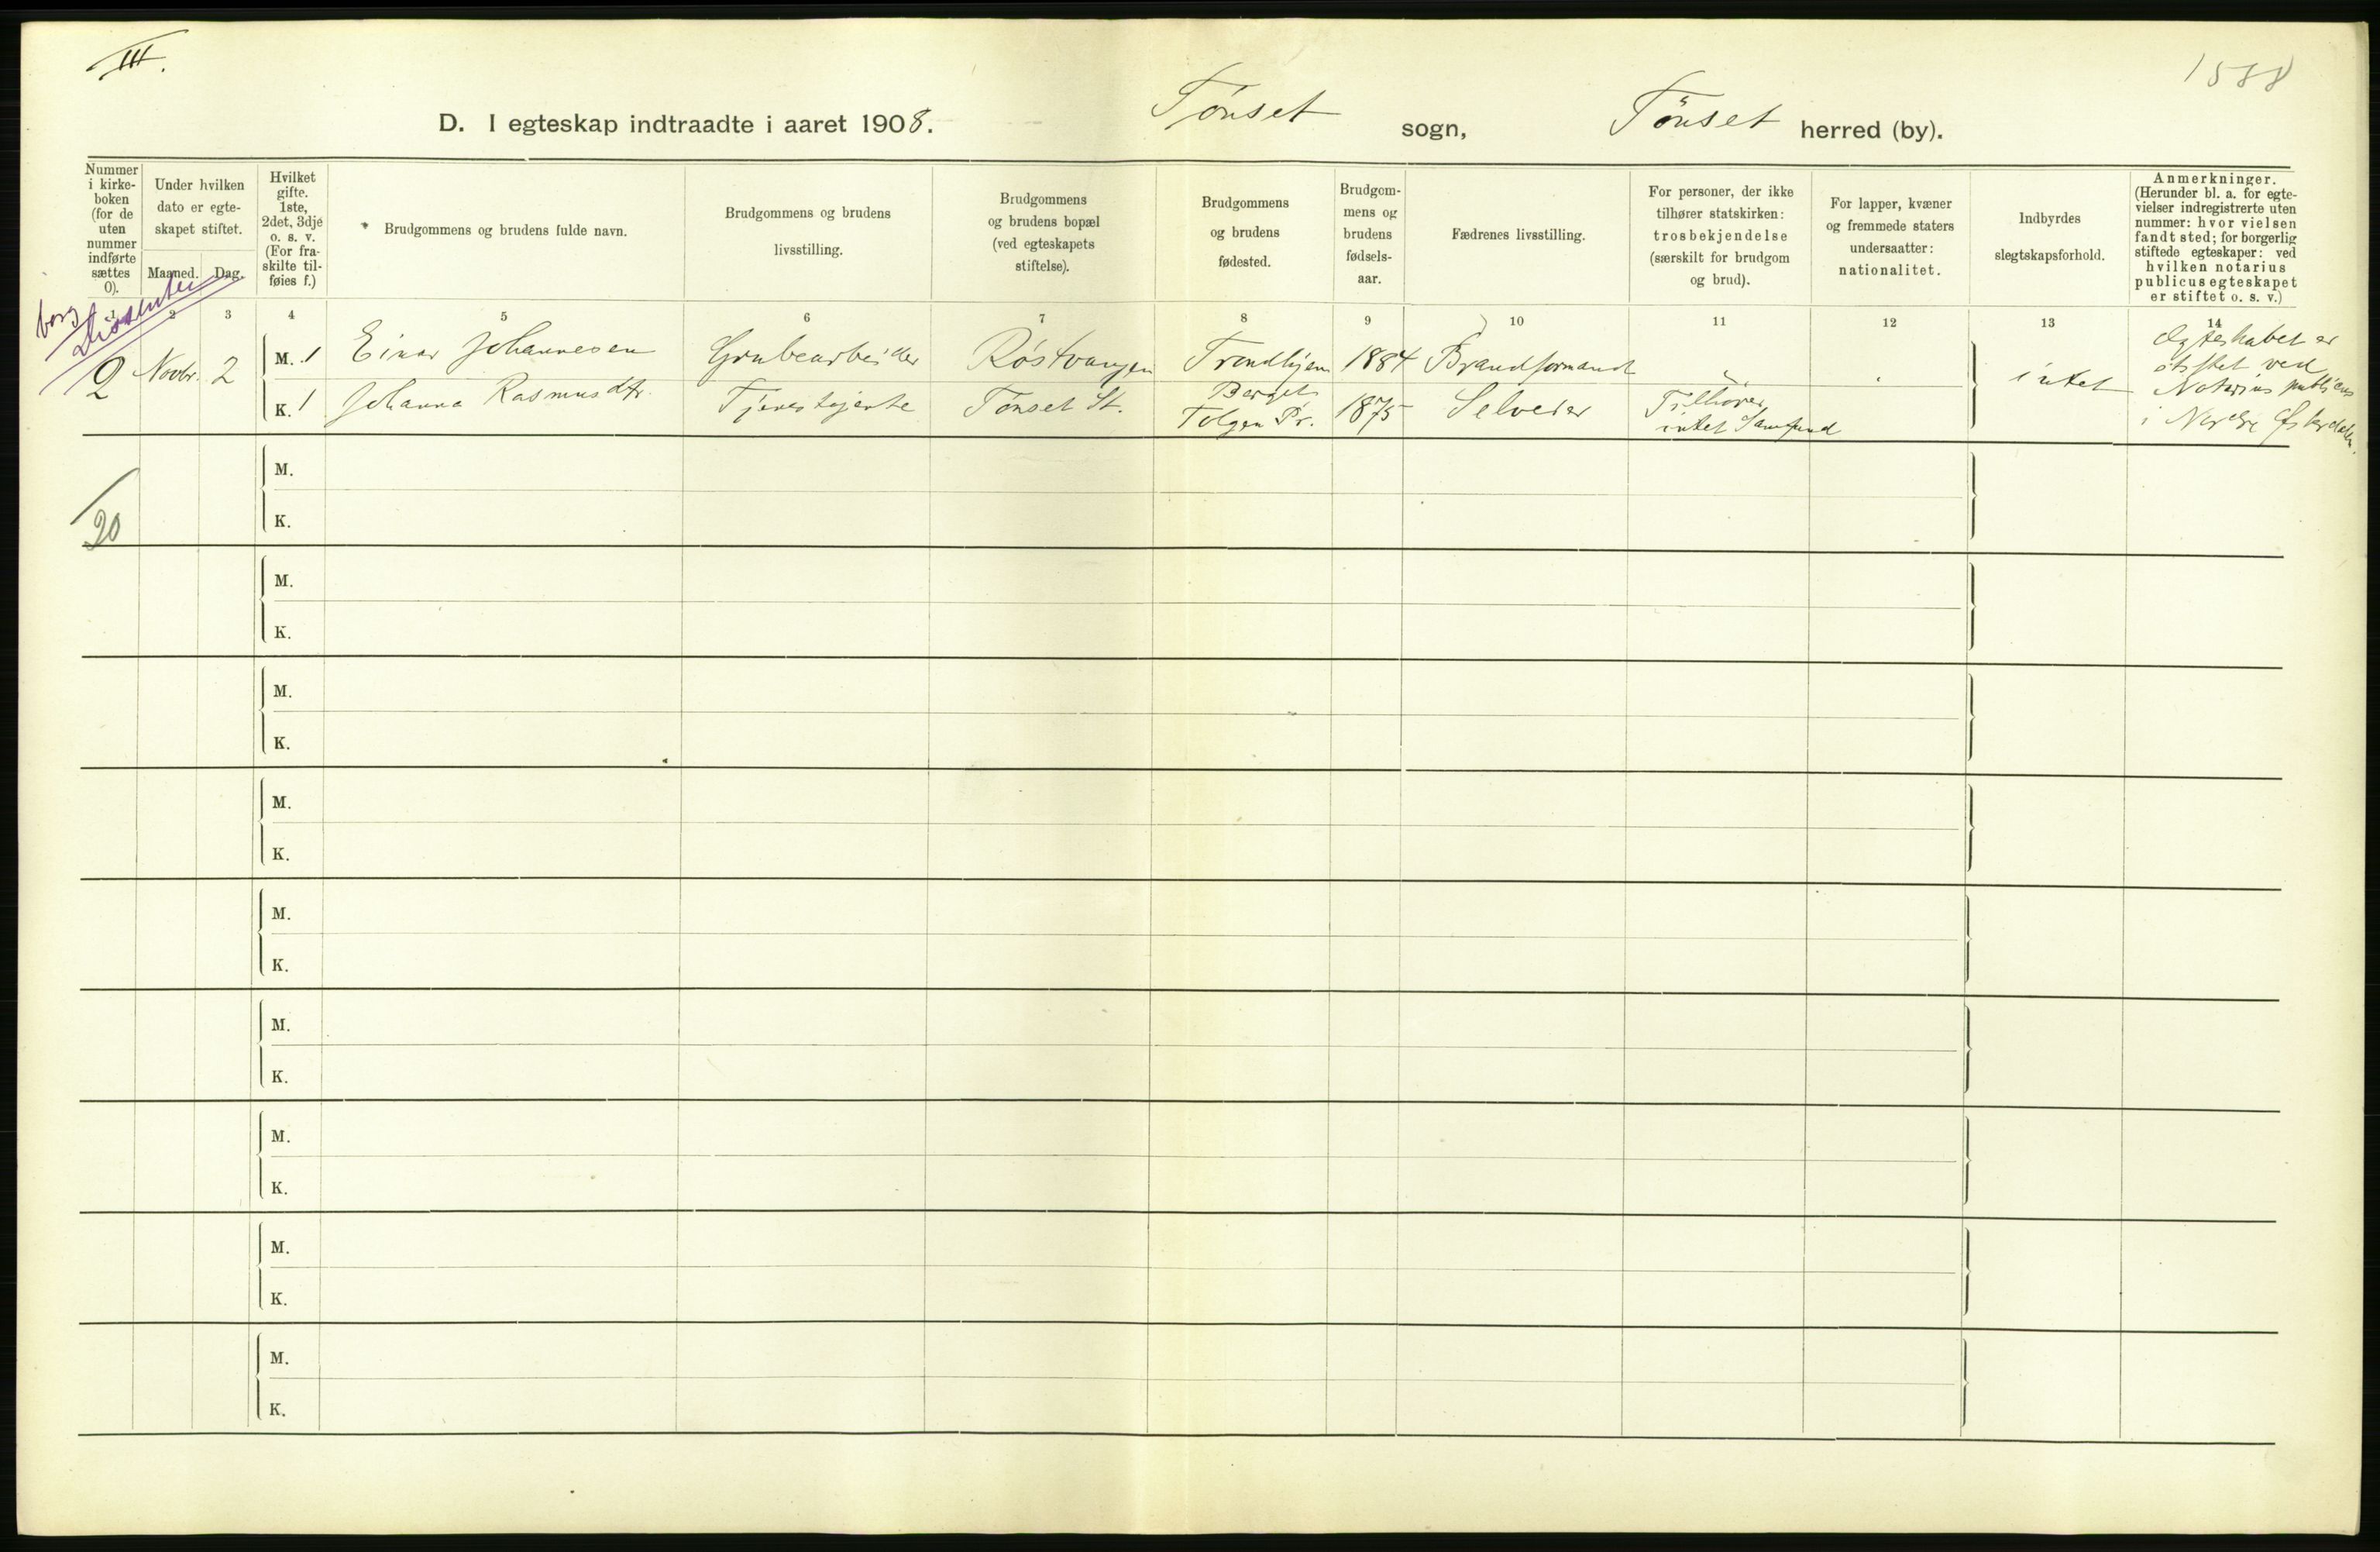 III.
1588
D. I egteskap indtraadte i aaret 1908.
Tønset sogn,
Tönset herred (by).
Nummer
i kirke-
boken
(for de
uten
nummer
indførte
sættes
0).
Under hvilken
dato er egte-
skapet stiftet.
Maaned.
Dag.
Hvilket
gifte.
1ste,
2det, 3dje
o. s. v.
(For fra-
skilte til-
føies f.)
Brudgommens og brudens fulde navn.
Brudgommens og brudens
livsstilling.
Brudgommens
og brudens bopæl
(ved egteskapets
stiftelse).
Brudgommens
og brudens
fødested.
Brudgom-
mens og
brudens
fødsels-
aar.
Fædrenes livsstilling.
For personer, der ikke
tilhører statskirken:
trosbekjendelse
(særskilt for brudgom
og brud).
For lapper, kvæner
og fremmede staters
undersaatter:
nationalitet.
Indbyrdes
slegtskapsforhold.
Anmerkninger.
(Herunder bl. a. for egte-
vielser indregistrerte uten
nummer: hvor vielsen
fandt sted; for borgerlig
stiftede egteskaper: ved
hvilken notarius
publicus egteskapet
er stiftet o. s. v.)
borg
Dissenter
1 2 3 4 5 6 7 8 9 10 11 12 13 14
2 Novbr. 2
M. 1 Einar Johannesen Grubearbeider Røstvangen Trondhjem 1884 Brandformand
K. 1 Johanna Rasmusdtr. Tjenestejente Tønset St. Berget
Tolgen Pr. 1875 Selveier Tilhører
intet Samfund
intet
Ægteskabet er
stiftet ved
Notarius publicus
i Nordre Østerdalen.
M.
K.
20
M.
K.
M.
K.
M.
K.
M.
K.
M.
K.
M.
K.
M.
K.
M.
K.